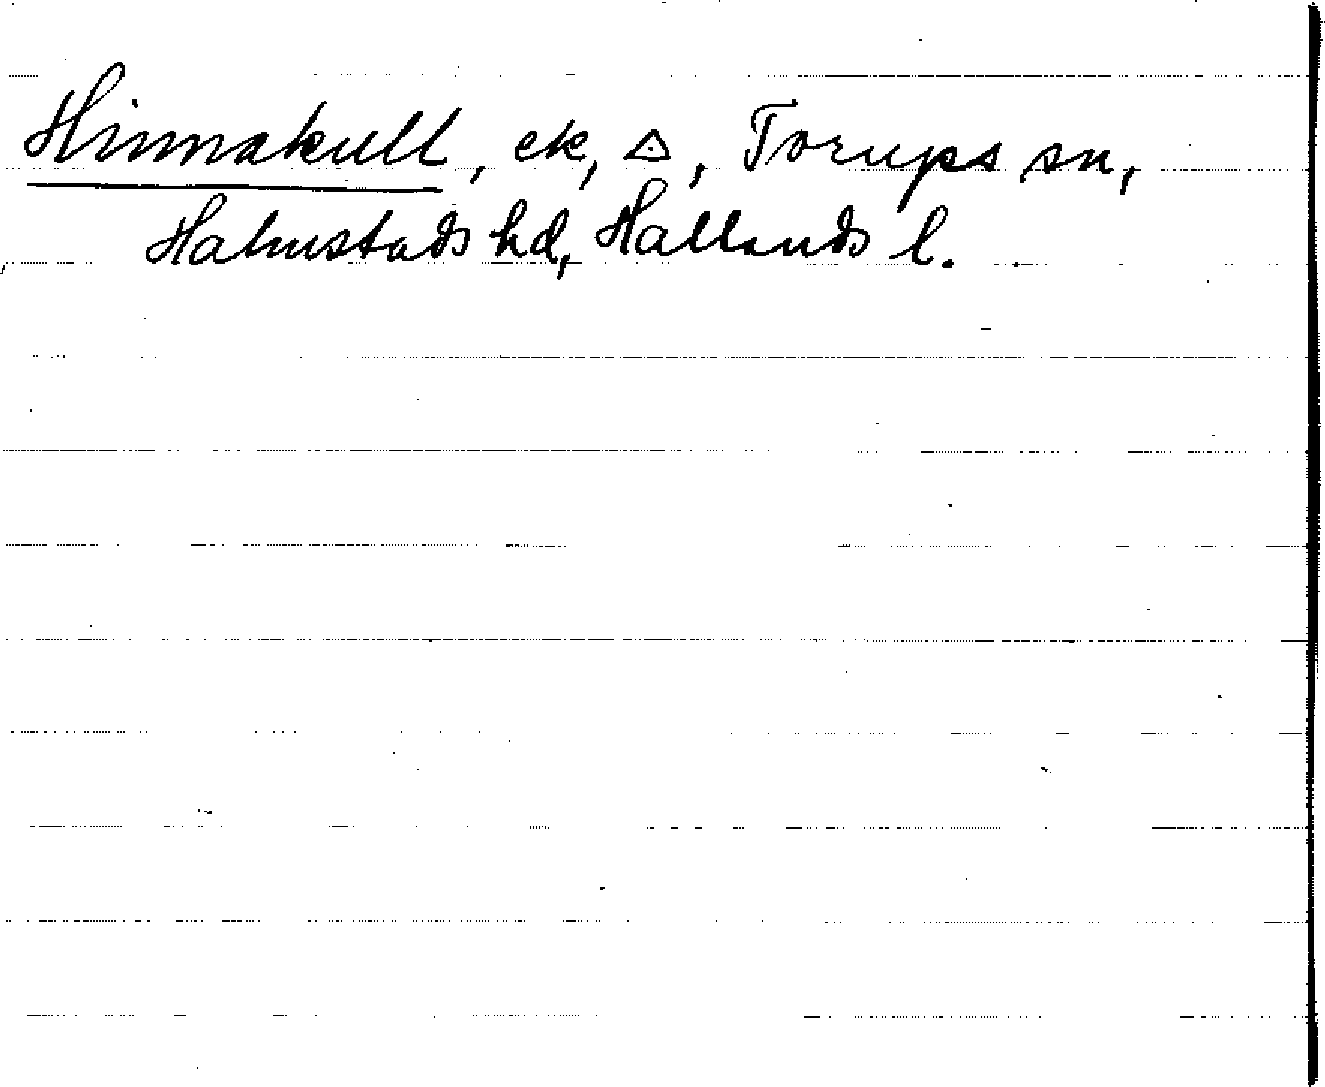 Hinnakull, ek, △, Torups sn,
Halmstads hd, Hallands l.